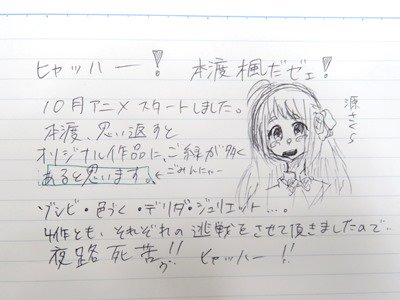 ヒャッハー! 本渡楓だぜェ!
10月アニメスタートしました。
源さくら
本渡、思い返すと
オリジナル作品に、ご縁が多く
あると思います。←ごみんにゃー
ゾンビ・色づく・デリダ・ジュリエット...。
4作とも、それぞれの挑戦をさせて頂きましたので..
夜路死苦!! ヒャッハー!!